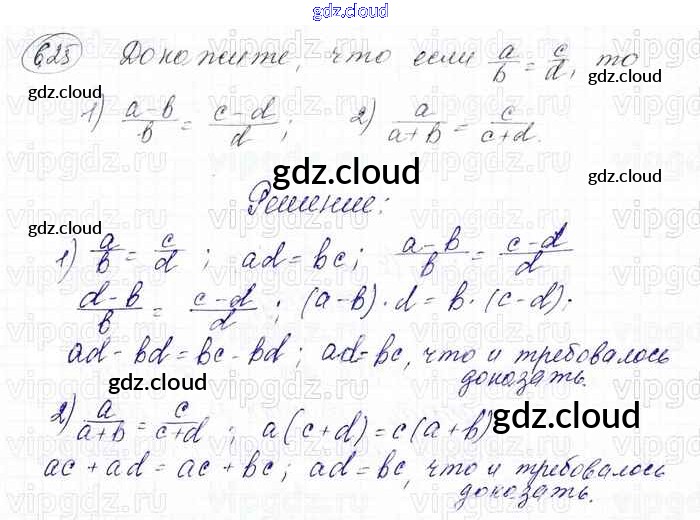 gdz.cloud
625 Докажите, что если a/b = c/d, то
gdz.cloud gdz.cloud
1) (a-b)/b = (c-d)/d; 2) a/(a+b) = c/(c+d).
gdz.cloud gdz.cloud gdz.cloud
Решение:
1) a/b = c/d; ad = bc; (a-b)/b = (c-d)/d
(d-b)/b = (c-d)/d; (a-b)·d = b·(c-d);
ad - bd = bc - bd; ad = bc, что и требовалось
доказать.
gdz.cloud
gdz.cloud
2) a/(a+b) = c/(c+d); a(c+d) = c(a+b)
ac + ad = ac + bc; ad = bc, что и требовалось
доказать.